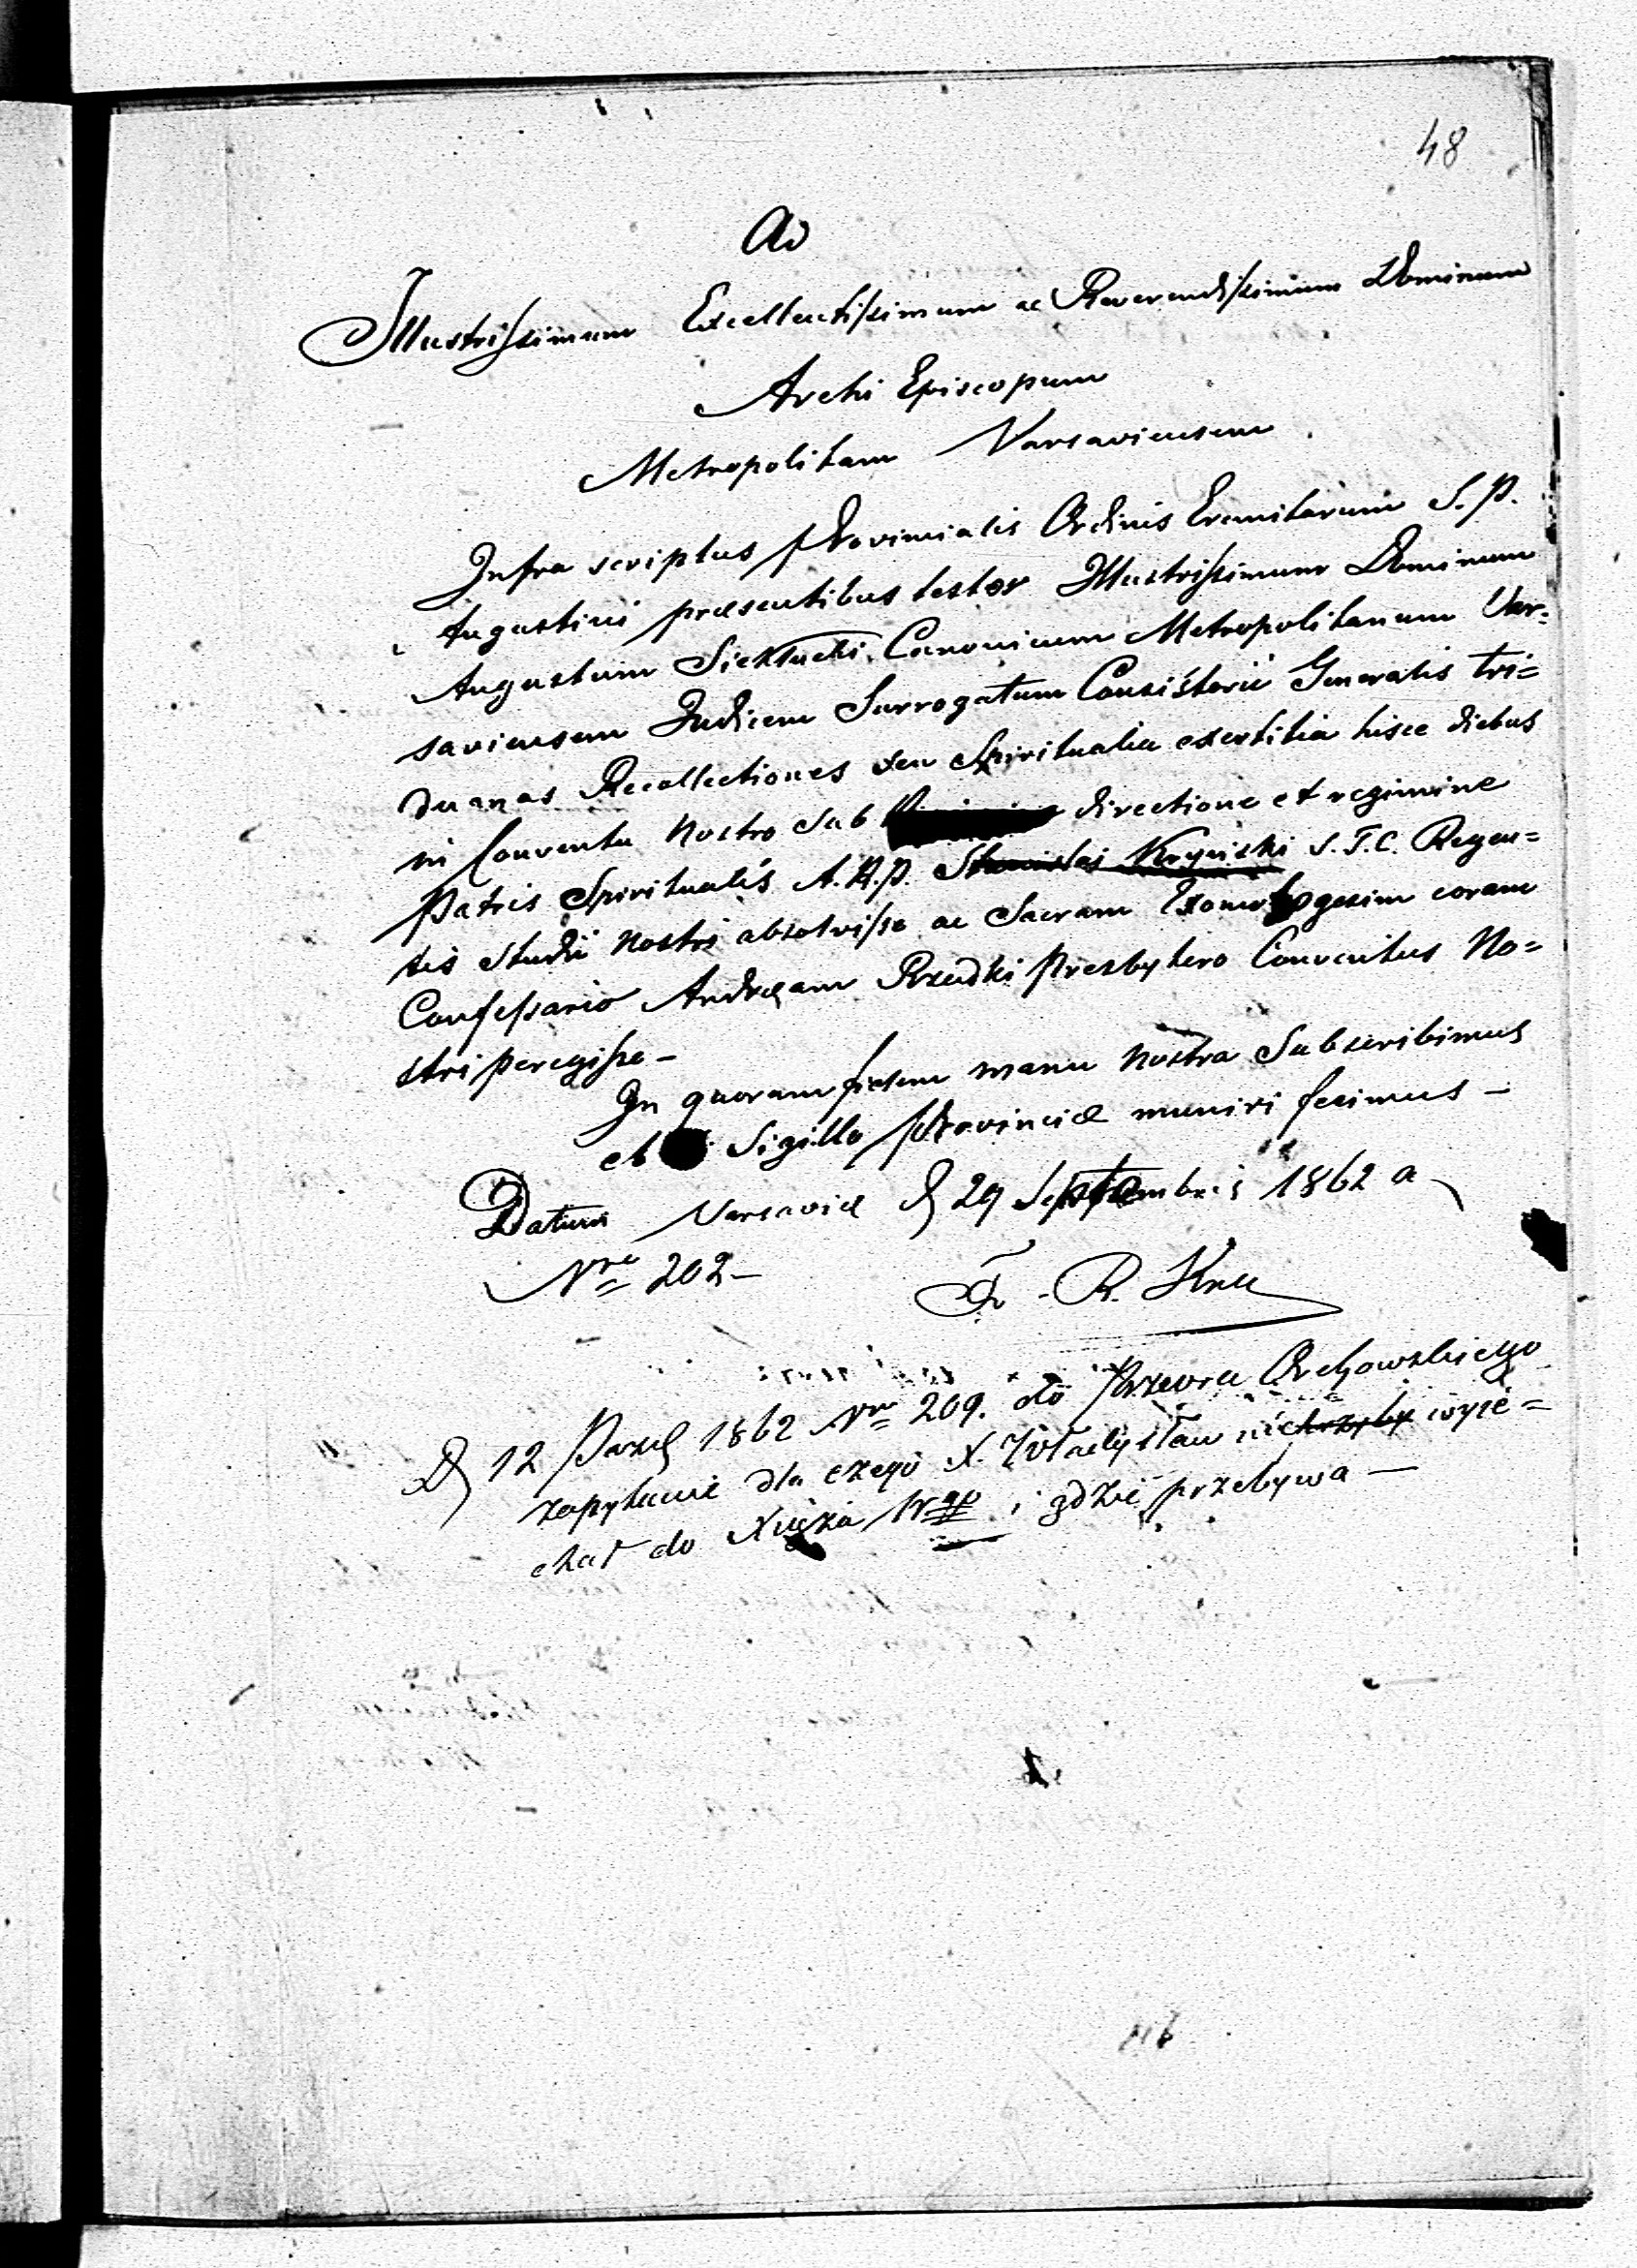 48
Ad
Illustrissimum Excellentissimum ac Reverendissimum Dominum
Archi Episcopum
Metropolitam Varsaviensem
Infra scriptus Provincialis Ordinis Eremitarum S. P.
Augustini præsentibus testor Illustrissimum Dominum
Augustum Siekłucki Canonicum Metropolitanum Var=
saviensem Judicem Surrogatum Consistorii Generalis tri=
duanas Recollectiones seu Spiritualia exertitia hisce diebus
in Conventu Nostro sub directione et regimine
Patris Spiritualis A.R.P. Stanislai Krynicki S.T.C. Regen=
tis Studii Nostri absolvisse ac Sacram coram
Confessario Andræam Rzudki Presbytero Conventus No=
stri peregisse –
In quorum fidem manu Nostra Subscribimus
et Sigillo Provinciæ muniri fecimus –
Datum Varsaviæ D 29 Septembris 1862 a
Nro 202 –
F. R. Kru
D 12 Paźd 1862 Nro 209. do Przeora Orchowskiego
zapytanie dla czego X. Władysław wyie=
chał do Xięża Wgo i gdzie przebywa —